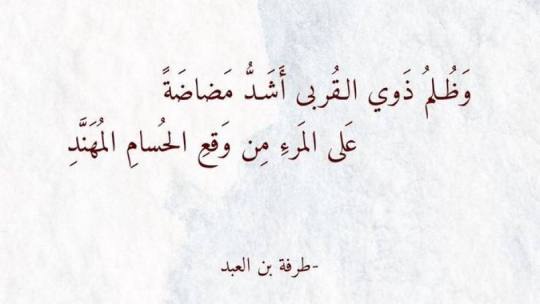 وَظُلمُ ذَوي القُربى أَشَدُّ مَضاضَةً
عَلى المَرءِ مِن وَقعِ الحُسامِ المُهَنَّدِ
-طرفة بن العبد